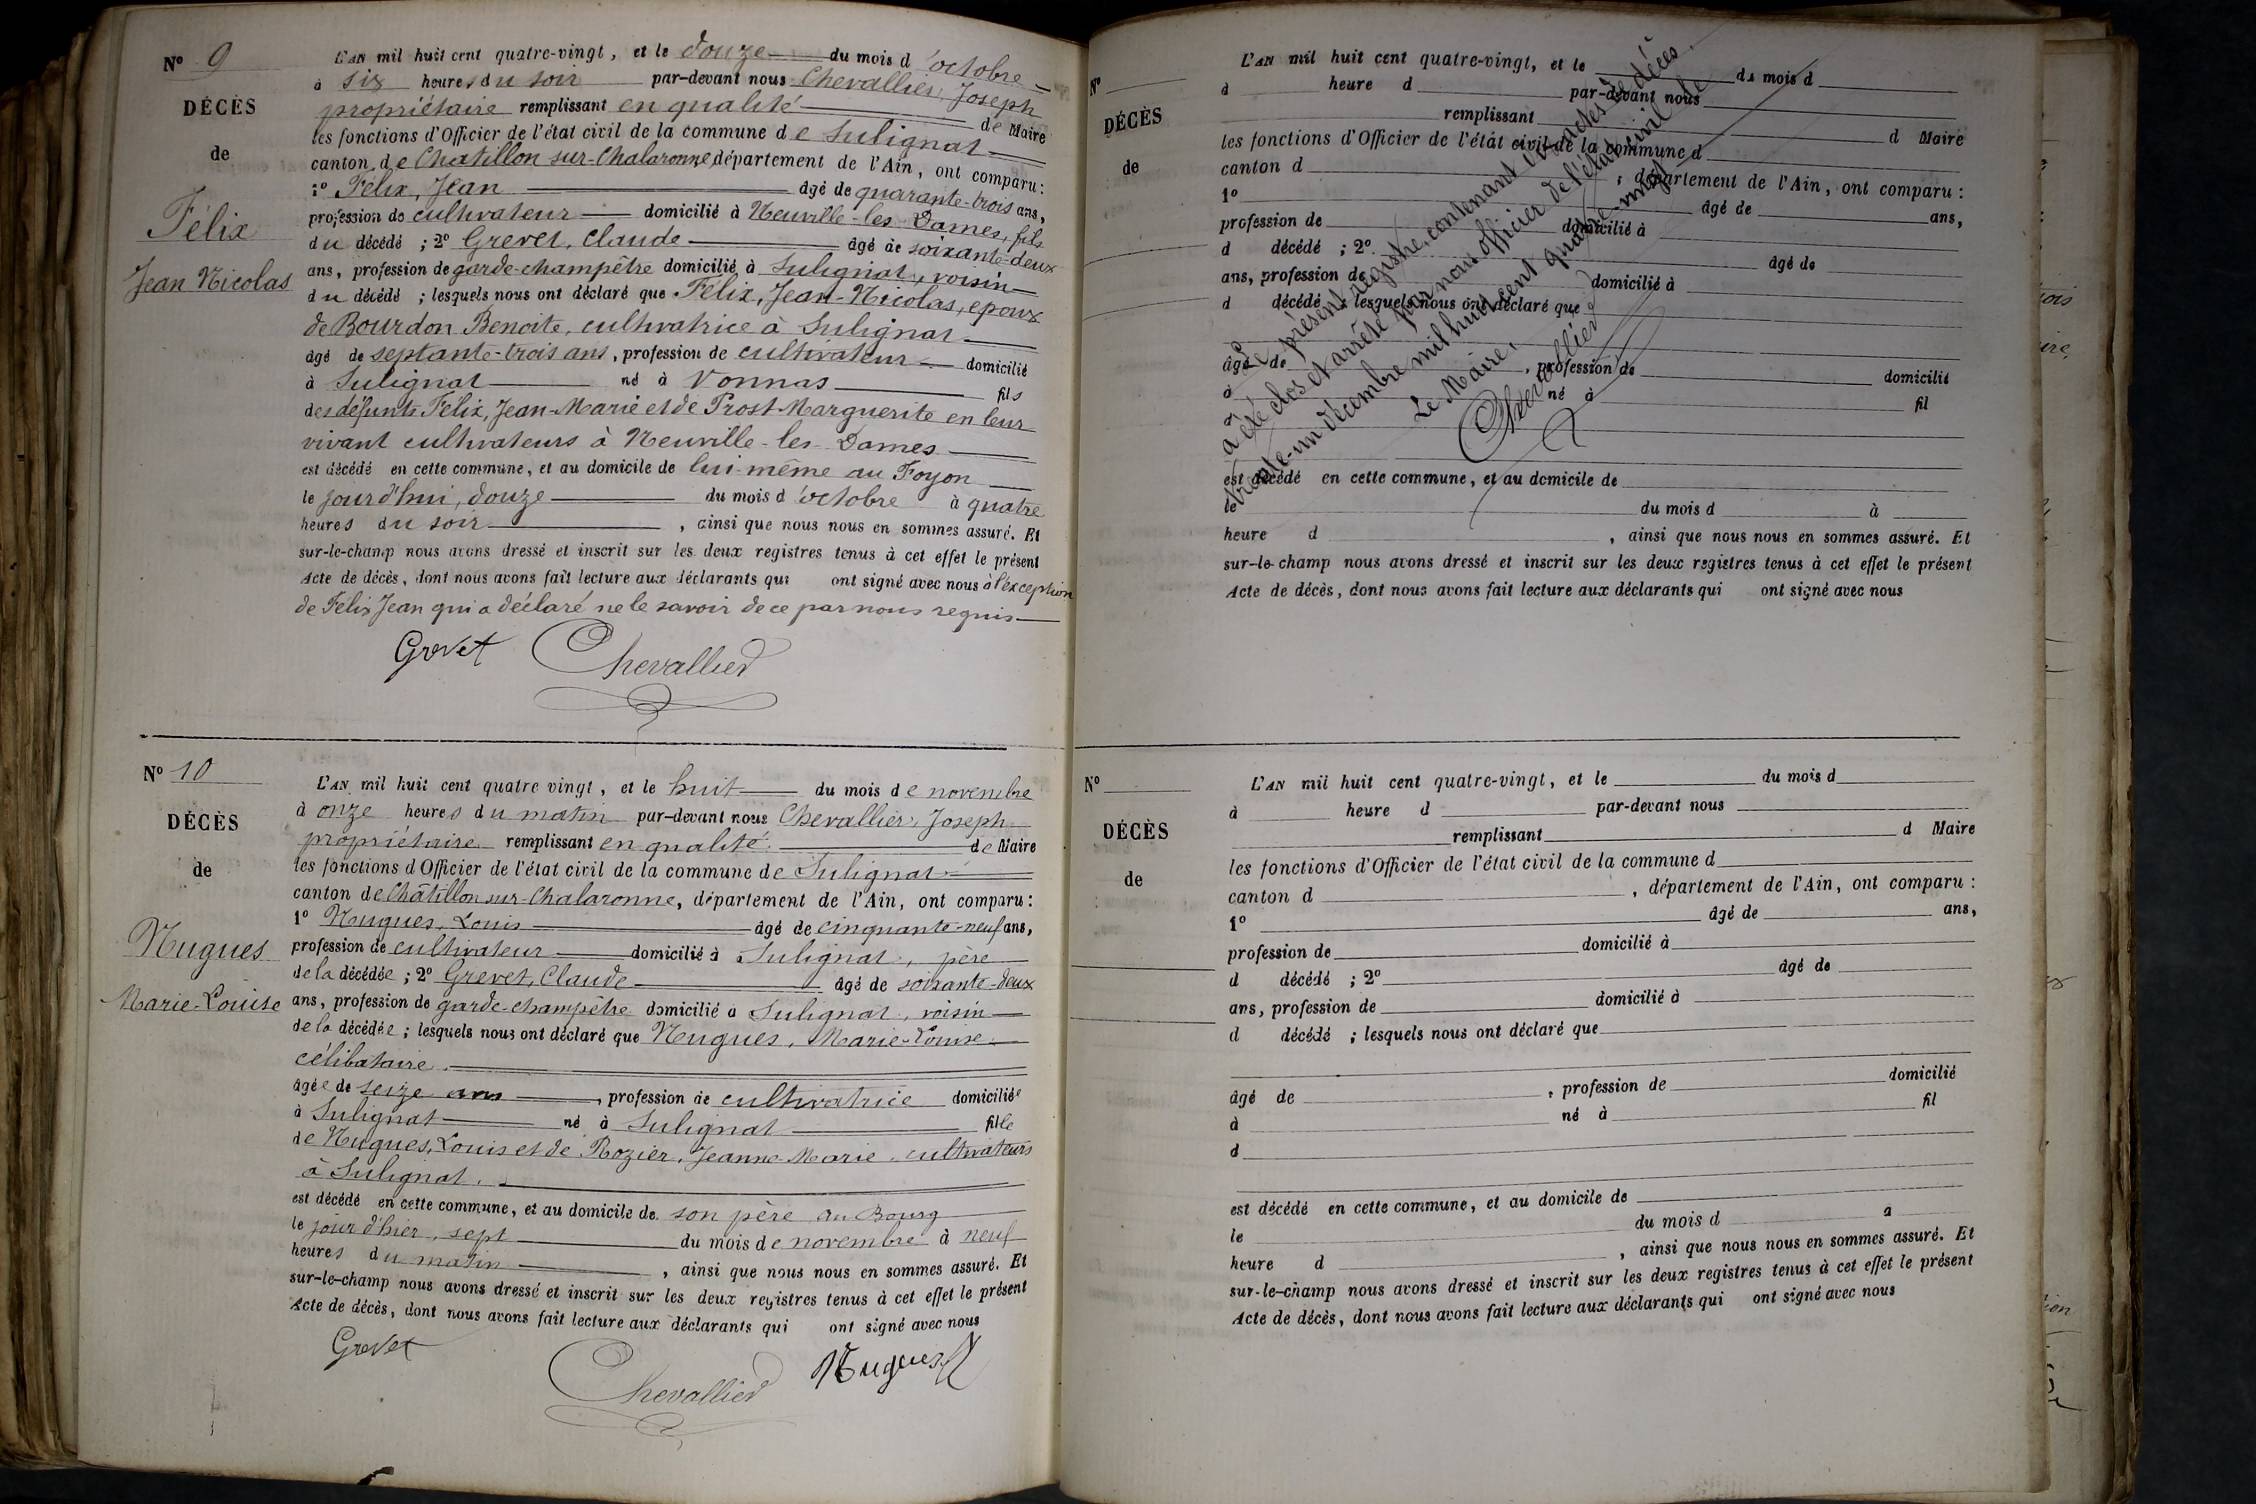 Nº 9
DÉCÈS
de
Félix
Jean Nicolas
L'AN mil huit cent quatre-vingt, et le douze du mois d'octobre
à six heures du soir par-devant nous Chevallier, Joseph
propriétaire remplissant en qualité de Maire
les fonctions d'Officier de l'état civil de la commune de Sulignat
canton de Chatillon-sur-Chalaronne, département de l'Ain, ont comparu :
1º Félix, Jean âgé de quarante-trois ans,
profession de cultivateur domicilié à Neuville-les-Dames, fils
du décédé ; 2º Grevet, Claude âgé de soixante-deux
ans, profession de garde-champêtre domicilié à Sulignat, voisin
du décédé ; lesquels nous ont déclaré que Félix, Jean-Nicolas, epoux
de Bourdon Benoite, cultivatrice à Sulignat
âgé de septante-trois ans, profession de cultivateur domicilié
à Sulignat né à Vonnas fils
des défunts Félix, Jean-Marie et de Prost Marguerite en leur
vivant cultivateurs à Neuville-les-Dames
est décédé en cette commune, et au domicile de lui-même au Foyon
le jourd'hui, douze du mois d'octobre à quatre
heures du soir, ainsi que nous nous en sommes assuré. Et
sur-le-champ nous avons dressé et inscrit sur les deux registres tenus à cet effet le présent
Acte de décès, dont nous avons fait lecture aux déclarants qui ont signé avec nous à l'exception
de Félix Jean qui a déclaré ne le savoir de ce par nous requis
Grevet Chevallier
Nº 10
DÉCÈS
de
Nugues
Marie-Louise
L'AN mil huit cent quatre vingt, et le huit du mois de novembre
à onze heures du matin par-devant nous Chevallier, Joseph
propriétaire remplissant en qualité de Maire
les fonctions d'Officier de l'état civil de la commune de Sulignat
canton de Châtillon-sur-Chalaronne, département de l'Ain, ont comparu :
1º Nugues, Louis âgé de cinquante-neuf ans,
profession de cultivateur domicilié à Sulignat, père
de la décédée ; 2º Grevet, Claude âgé de soixante-deux
ans, profession de garde-champêtre domicilié à Sulignat, voisin
de la décédée ; lesquels nous ont déclaré que Nugues, Marie-Louise
célibataire
âgée de seize ans, profession de cultivatrice domiciliée
à Sulignat né à Sulignat fille
de Nugues, Louis et de Rozier, Jeanne-Marie, cultivateurs
à Sulignat.
est décédé en cette commune, et au domicile de son père au Bourg
le jour d'hier, sept du mois de novembre à neuf
heures du matin, ainsi que nous nous en sommes assuré. Et
sur-le-champ nous avons dressé et inscrit sur les deux registres tenus à cet effet le présent
Acte de décès, dont nous avons fait lecture aux déclarants qui ont signé avec nous
Grevet Chevallier Nugues
Nº
DÉCÈS
de
L'AN mil huit cent quatre-vingt, et le du mois d
à heure d par-devant nous
remplissant d Maire
les fonctions d'Officier de l'état civil de la commune d
canton d, département de l'Ain, ont comparu :
1º âgé de ans,
profession de domicilié à
d décédé ; 2º âgé de
ans, profession de domicilié à
d décédé ; lesquels nous ont déclaré que
âgé de, profession de domicilié
à né à fil
d
est décédé en cette commune, et au domicile de
le du mois d à
heure d, ainsi que nous nous en sommes assuré. Et
sur-le-champ nous avons dressé et inscrit sur les deux registres tenus à cet effet le présent
Acte de décès, dont nous avons fait lecture aux déclarants qui ont signé avec nous
Le présent registre, contenant dix actes de décès
a été clos et arrêté par nous officier de l'état civil le
trente-un décembre mil huit cent quatre-vingt
Le Maire,
Chevallier
Nº
DÉCÈS
de
L'AN mil huit cent quatre-vingt, et le du mois d
à heure d par-devant nous
remplissant d Maire
les fonctions d'Officier de l'état civil de la commune d
canton d, département de l'Ain, ont comparu :
1º âgé de ans,
profession de domicilié à
d décédé ; 2º âgé de
ans, profession de domicilié à
d décédé ; lesquels nous ont déclaré que
âgé de, profession de domicilié
à né à fil
d
est décédé en cette commune, et au domicile de
le du mois d à
heure d, ainsi que nous nous en sommes assuré. Et
sur-le-champ nous avons dressé et inscrit sur les deux registres tenus à cet effet le présent
Acte de décès, dont nous avons fait lecture aux déclarants qui ont signé avec nous